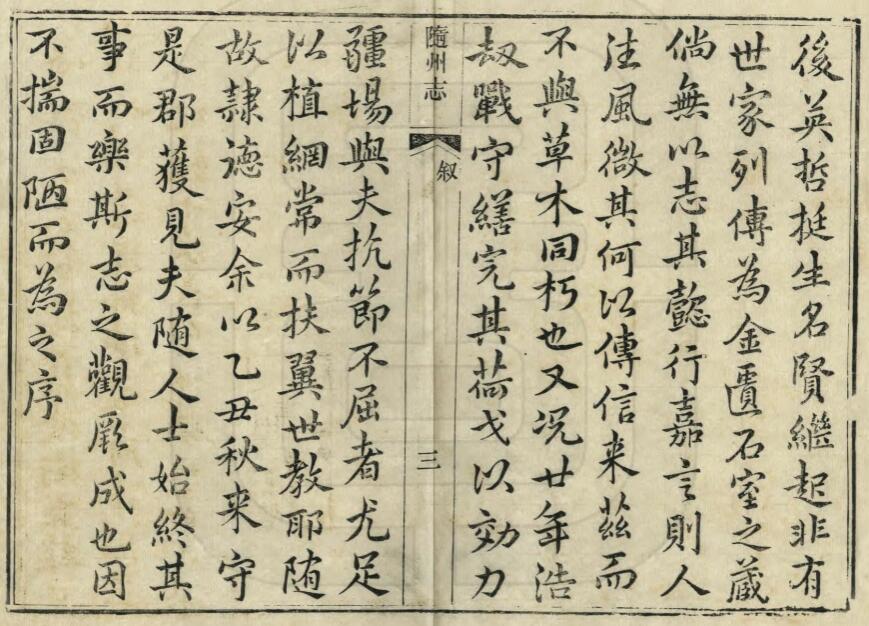 後英哲挺生名賢繼起非有
世家列傳為金匱石室之藏
倘無以志其懿行嘉言則人
往風微其何以傳信来茲而
不與草木同朽也又况廿年浩
刼戰守繕完其荷戈以効力
隨州志
叙
三
疆場與夫抗節不屈者尤足
以植綱常而扶翼世教耶随
故隷德安余以乙丑秋来守
是郡獲見夫随人士始終其
事而樂斯志之觀厥成也因
不揣固陋而為之序